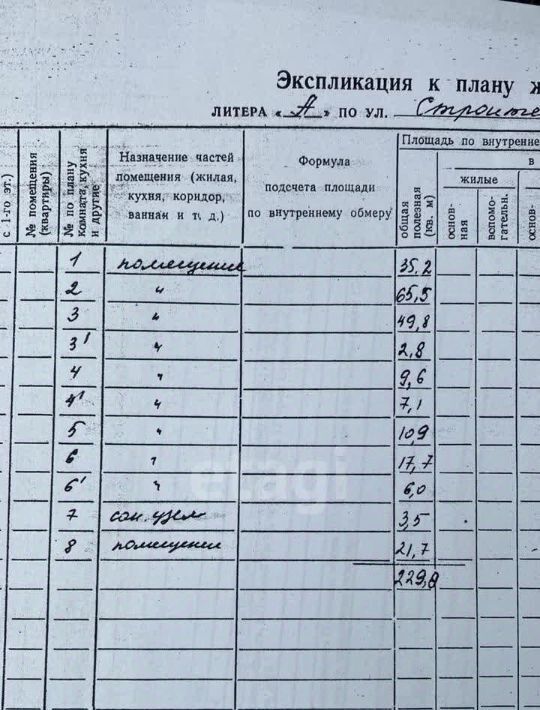 Экспликация к плану ж
ЛИТЕРА «А» ПО УЛ. Строите
с 1-го эт.)
№ помещения (квартиры)
№ по плану комната, кухня и другие
Назначение частей помещения (жилая, кухня, коридор, ванная и т. д.)
Формула подсчета площади по внутреннему обмеру
Площадь по внутренне
в
общая полезная (кв. м)
жилые
основ-ная
вспомо-гательн.
основ-
1 помещение 35,2
2 " 65,5
3 " 49,8
3' " 2,8
4 " 9,6
4' " 7,1
5 " 10,9
6 " 17,7
6' " 6,0
7 сан. узел 3,5
8 помещение 21,7
229,8
etagi